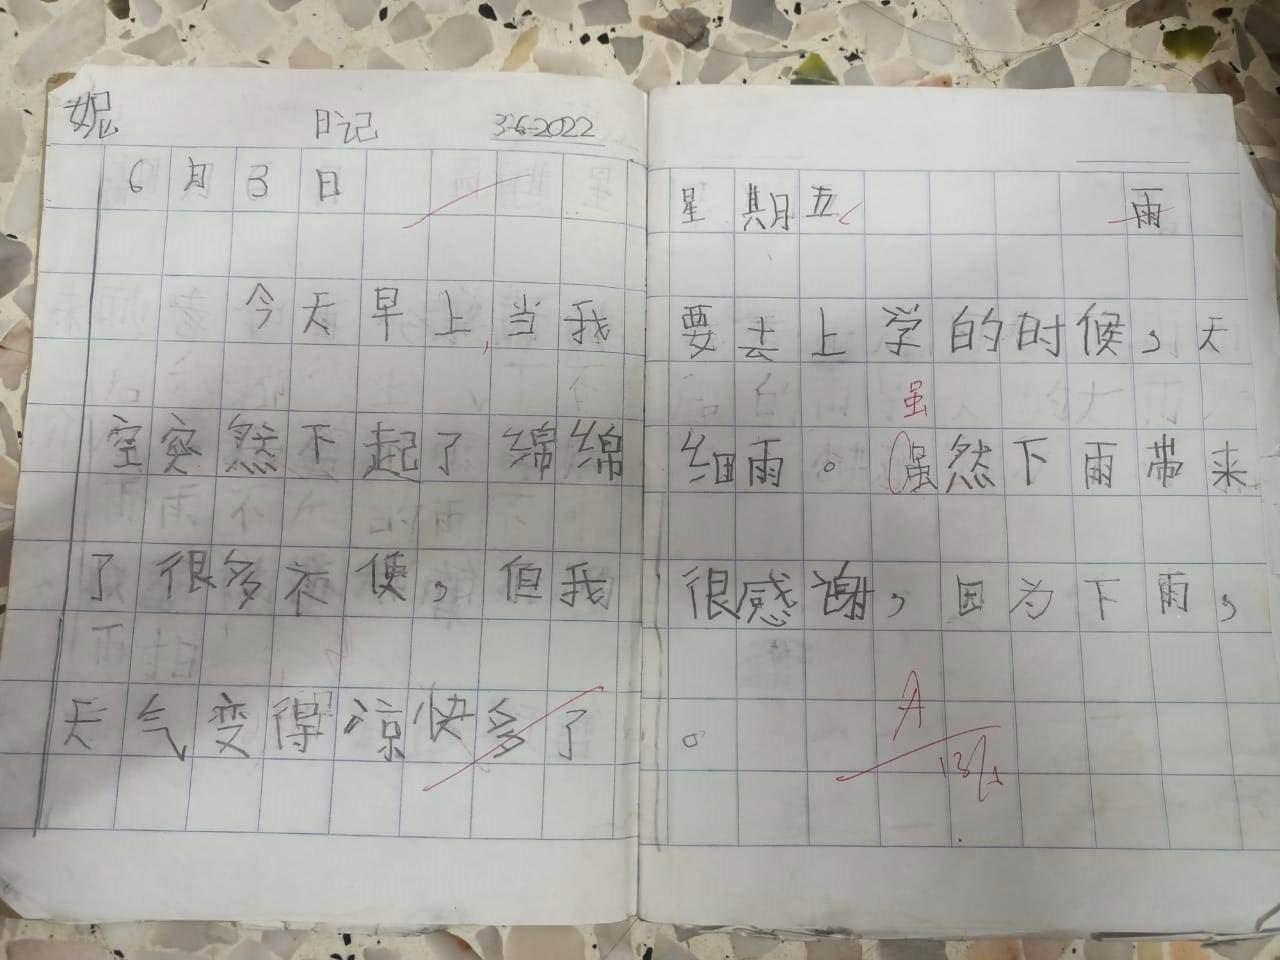 妮 日记 3-6-2022
6月3日 星期五 雨
今天早上,当我要去上学的时候,天
空突然下起了绵绵细雨。虽然下雨带来
虽
了很多不便,但我很感谢,因为下雨,
天气变得凉快多了。
A